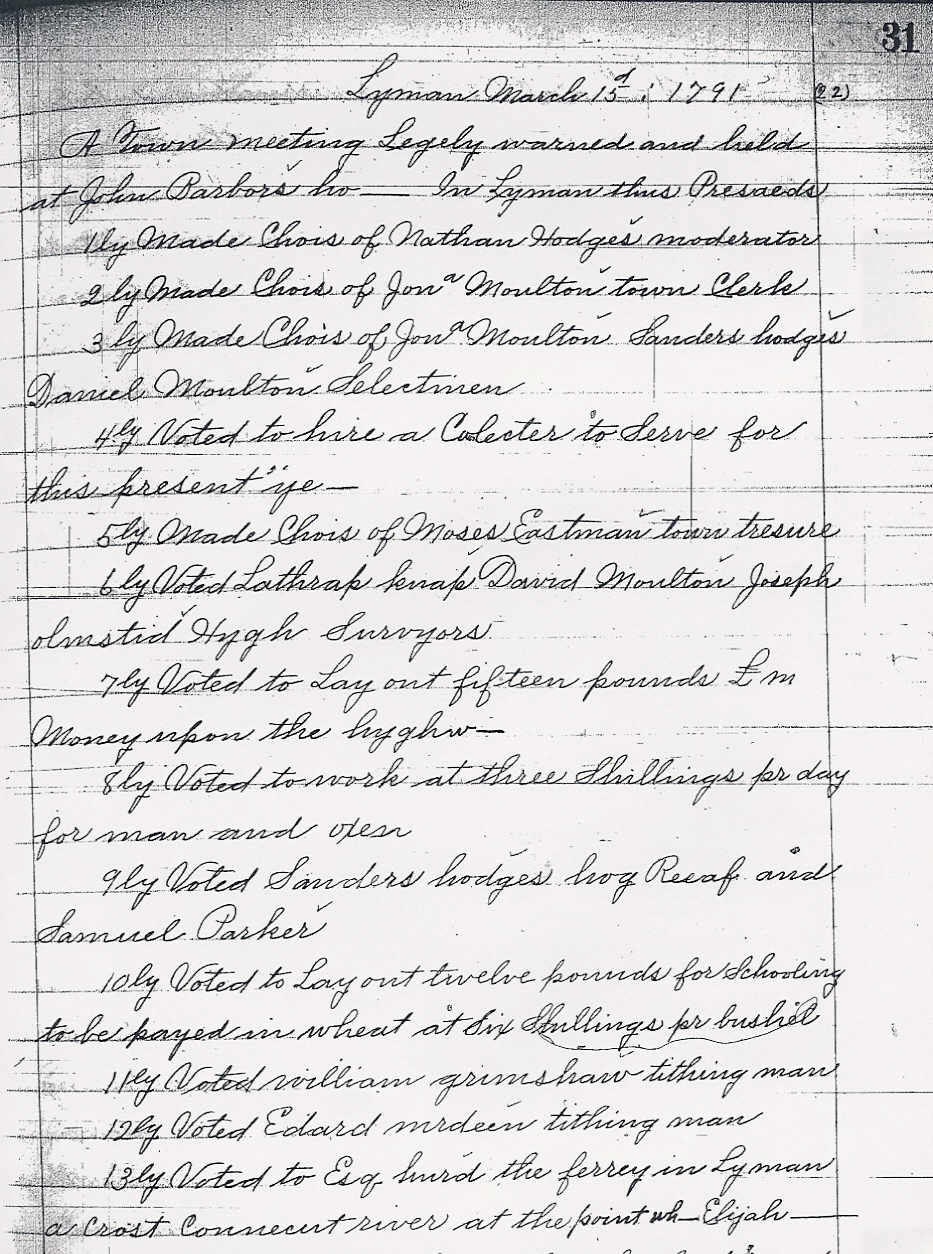 31
Lyman March 15d : 1791 (22)
A Town meeting Legely warned and held
at John Barbors ho— In Lyman thus Presaeds
1ly Made Chois of Nathan Hodges moderator
2ly Made Chois of Jona Moulton town Clerk
3ly Made Chois of Jona Moulton Sanders hodges
Daniel Moulton Selectmen
4ly Voted to hire a Colecter to Serve for
this present "ye—
5ly Made Chois of Moses Eastman town tresure
6ly Voted Lathrap knap David Moulton Joseph
olmstid Hygh Survyors
7ly Voted to Lay out fifteen pounds £ m
Money upon the hyghw—
8ly Voted to work at three Shillings pr day
for man and oxen
9ly Voted Sanders hodges hog Reeaf and
Samuel Parker
10ly Voted to Lay out twelve pounds for Schooling
to be payed in wheat at Six Shullings pr bushel
11ly Voted william grimshaw tithing man
12ly Voted Edard mrdeen tithing man
13ly Voted to Esq hurd the ferrey in Lyman
a Crost Connecut river at the point wh— Elijah —